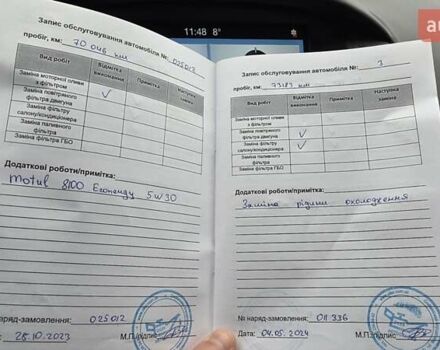 11:48 8°
au
Запис обслуговування автомобіля №: 025012
пробіг, км: 70 046 км
Вид робіт Відмітка виконання Примітка Наступна заміна
Заміна моторної оливи з фільтром
Заміна повітряного фільтра двигуна ✓
Заміна фільтру салону/кондиціонера
Заміна паливного фільтра
Заміна фільтра ГБО
Додаткові роботи/примітка:
Motul 8100 Econergy 5w30
наряд-замовлення: 025012
: 28.10.2023 М.П./підпис
Запис обслуговування автомобіля №: 3
пробіг, км: 73183 км
Вид робіт Відмітка виконання Примітка Наступна заміна
Заміна моторної оливи з фільтром
Заміна повітряного фільтра двигуна ✓
Заміна фільтру салону/кондиціонера ✓
Заміна паливного фільтра
Заміна фільтра ГБО
Додаткові роботи/примітка:
Заміна рідини охолодження
№ наряд-замовлення: 011 336
Дата: 04.05.2024 М.П./підпис